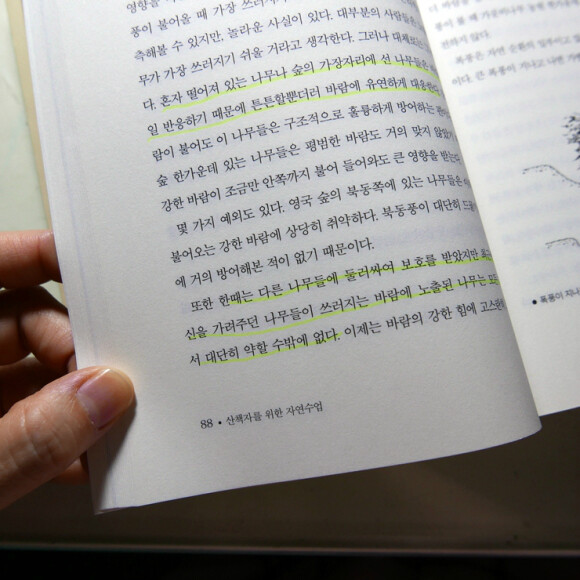 영향을
풍이 불어올 때 가장 쓰러지기
측해볼 수 있지만, 놀라운 사실이 있다. 대부분의 사람들은
무가 가장 쓰러지기 쉬울 거라고 생각한다. 그러나 대체로는
다. 혼자 떨어져 있는 나무나 숲의 가장자리에 선 나무들은
일 반응하기 때문에 튼튼할뿐더러 바람에 유연하게 대응한다.
람이 불어도 이 나무들은 구조적으로 훌륭하게 방어하는 편이
숲 한가운데 있는 나무들은 평범한 바람도 거의 맞지 않았기
강한 바람이 조금만 안쪽까지 불어 들어와도 큰 영향을 받는다.
몇 가지 예외도 있다. 영국 숲의 북동쪽에 있는 나무들은
불어오는 강한 바람에 상당히 취약하다. 북동풍이 대단히
에 거의 방어해본 적이 없기 때문이다.
또한 한때는 다른 나무들에 둘러싸여 보호를 받았지만
신을 가려주던 나무들이 쓰러지는 바람에 노출된 나무는
서 대단히 약할 수밖에 없다. 이제는 바람의 강한 힘에
88 • 산책자를 위한 자연수업
폭풍은 자연 순환의
이다. 큰 폭풍이 지나고 나면
• 폭풍이 지나